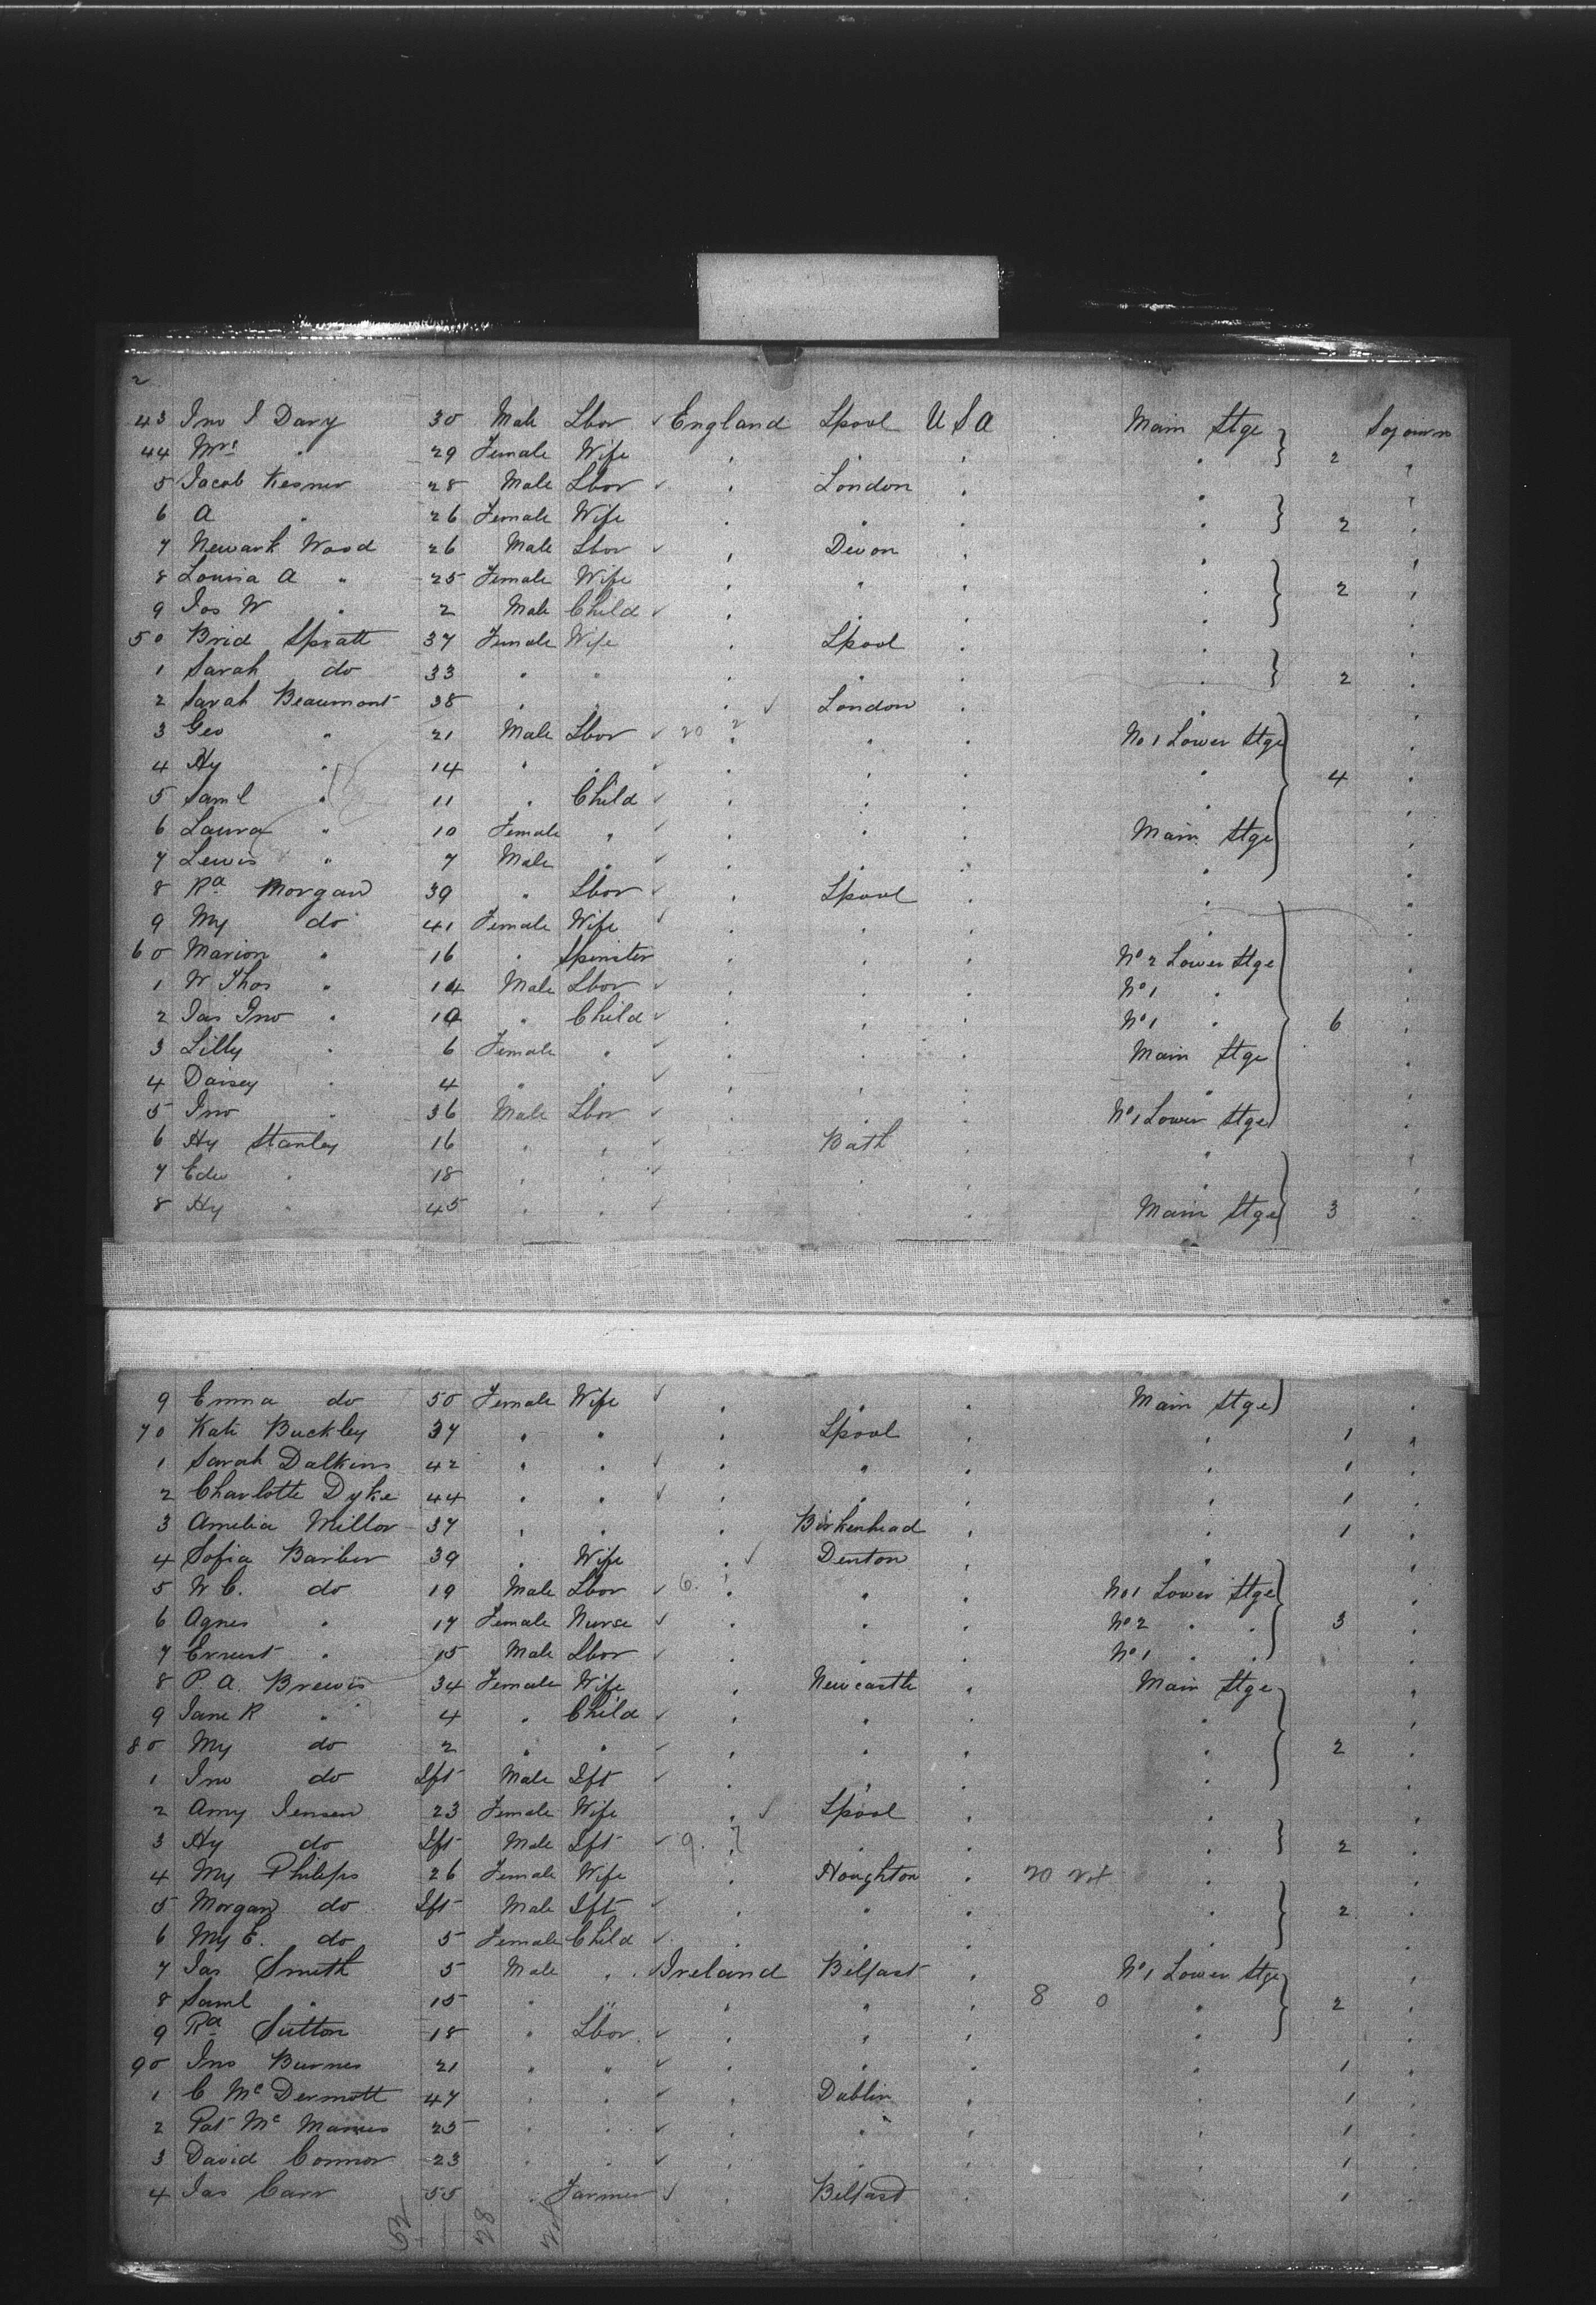 2
43 Jno J Davy 30 Male Lbor England Lpool U S A Main Stge Sojourn
44 Mrs " 29 Female Wife " " " " 2 "
5 Jacob Kesner 28 Male Lbor " London " " "
6 A " 26 Female Wife " " " " 2 "
7 Newark Wood 26 Male Lbor " Devon " " "
8 Louisa A " 25 Female Wife " " " " 2 "
9 Jos W " 2 Male Child " " " " "
50 Brid Spratt 37 Female Wife " Lpool " " "
1 Sarah do 33 " " " " " " 2 "
2 Sarah Beaumont 38 " " " London " " "
3 Geo " 21 Male Lbor 20 " " " No 1 Lower Stge "
4 Hy " 14 " " " " " " 4 "
5 Saml " 11 " Child " " " " "
6 Laura " 10 Female " " " " Main Stge "
7 Lewis " 7 Male " " " " " "
8 Rd Morgan 39 " Lbor " Lpool " " "
9 My do 41 Female Wife " " " " "
60 Marion " 16 " Spinster " " " No 2 Lower Stge "
1 W Thos " 14 Male Lbor " " " No 1 " "
2 Jas Jno " 10 " Child " " " No 1 " 6 "
3 Lilly " 6 Female " " " " Main Stge "
4 Daisey " 4 " " " " " " "
5 Jno " 36 Male Lbor " " " No 1 Lower Stge "
6 Hy Stanley 16 " " " Bath " " "
7 Edw " 18 " " " " " " "
8 Hy " 45 " " " " " Main Stge 3 "
9 Emma do 50 Female Wife " " " Main Stge "
70 Kate Buckley 37 " " " Lpool " " 1 "
1 Sarah Dalkins 42 " " " " " " 1 "
2 Charlotte Dyke 44 " " " " " " 1 "
3 Amelia Millor 37 " " " Birkenhead " " 1 "
4 Sofia Barber 39 " Wife " Denton " " "
5 W C. do 19 Male Lbor 6. " " " No 1 Lower Stge "
6 Agnes " 17 Female Nurse " " " No 2 " " 3 "
7 Ernest " 15 Male Lbor " " " No 1 " " "
8 P. A. Brewis 34 Female Wife " Newcastle " Main Stge "
9 Jane R " 4 " Child " " " " "
80 My do 2 " " " " " " 2 "
1 Jno do Ift Male Ift " " " " "
2 Amy Jensen 23 Female Wife " Lpool " " "
3 Hy do Ift Male Ift 9. " " " " 2 "
4 My Philips 26 Female Wife " Houghton " 20 " "
5 Morgan do Ift Male Ift " " " " 2 "
6 My E. do 5 Female Child " " " " "
7 Jas Smith 5 Male " Ireland Belfast " No 1 Lower Stge "
8 Saml " 15 " " " " " 8 0 " 2 "
9 Rd Sutton 18 " Lbor " " " " "
90 Jno Burnes 21 " " " " " " 1 "
1 C McDermott 47 " " " Dublin " " 1 "
2 Pat Mc Manus 25 " " " " " " 1 "
3 David Connor 23 " " " " " " 1 "
4 Jas Carr 55 " Farmer " Belfast " " 1 "
28